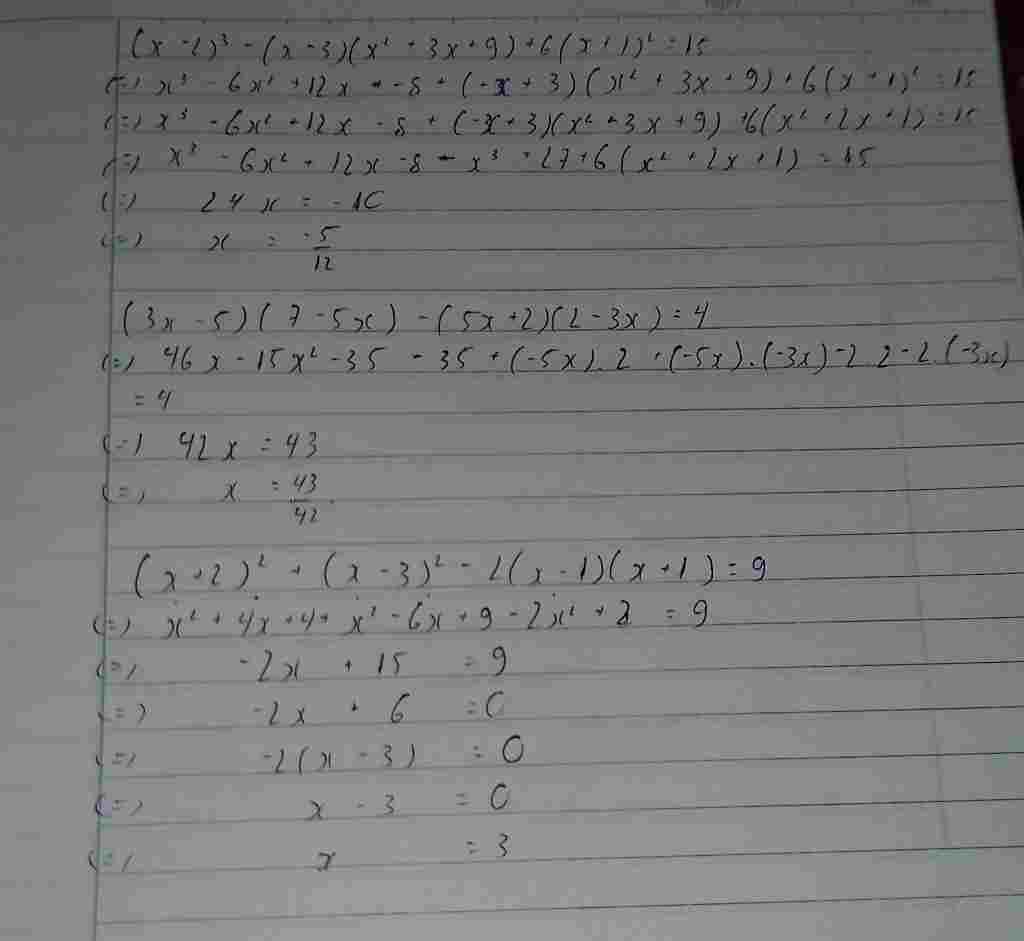 (x - 2)³ - (x - 3)(x² + 3x + 9) + 6(x + 1)² = 15
(=) x³ - 6x² + 12x - 8 + (-x + 3)(x² + 3x + 9) + 6(x + 1)² = 15
(=) x³ - 6x² + 12x - 8 + (-x + 3)(x² + 3x + 9) + 6(x² + 2x + 1) = 15
(=) x³ - 6x² + 12x - 8 - x³ + 27 + 6(x² + 2x + 1) = 15
(=) 24x = -10
(=) x = -5/12
(3x - 5)(7 - 5x) - (5x + 2)(2 - 3x) = 4
(=) 46x - 15x² - 35 - 35 + (-5x).2 + (-5x).(-3x) - 2.2 - 2.(-3x)
= 4
(=) 42x = 43
(=) x = 43/42.
(x + 2)² + (x - 3)² - 2(x - 1)(x + 1) = 9
(=) x² + 4x + 4 + x² - 6x + 9 - 2x² + 2 = 9
(=) -2x + 15 = 9
(=) -2x + 6 = 0
(=) -2(x - 3) = 0
(=) x - 3 = 0
(=) x = 3